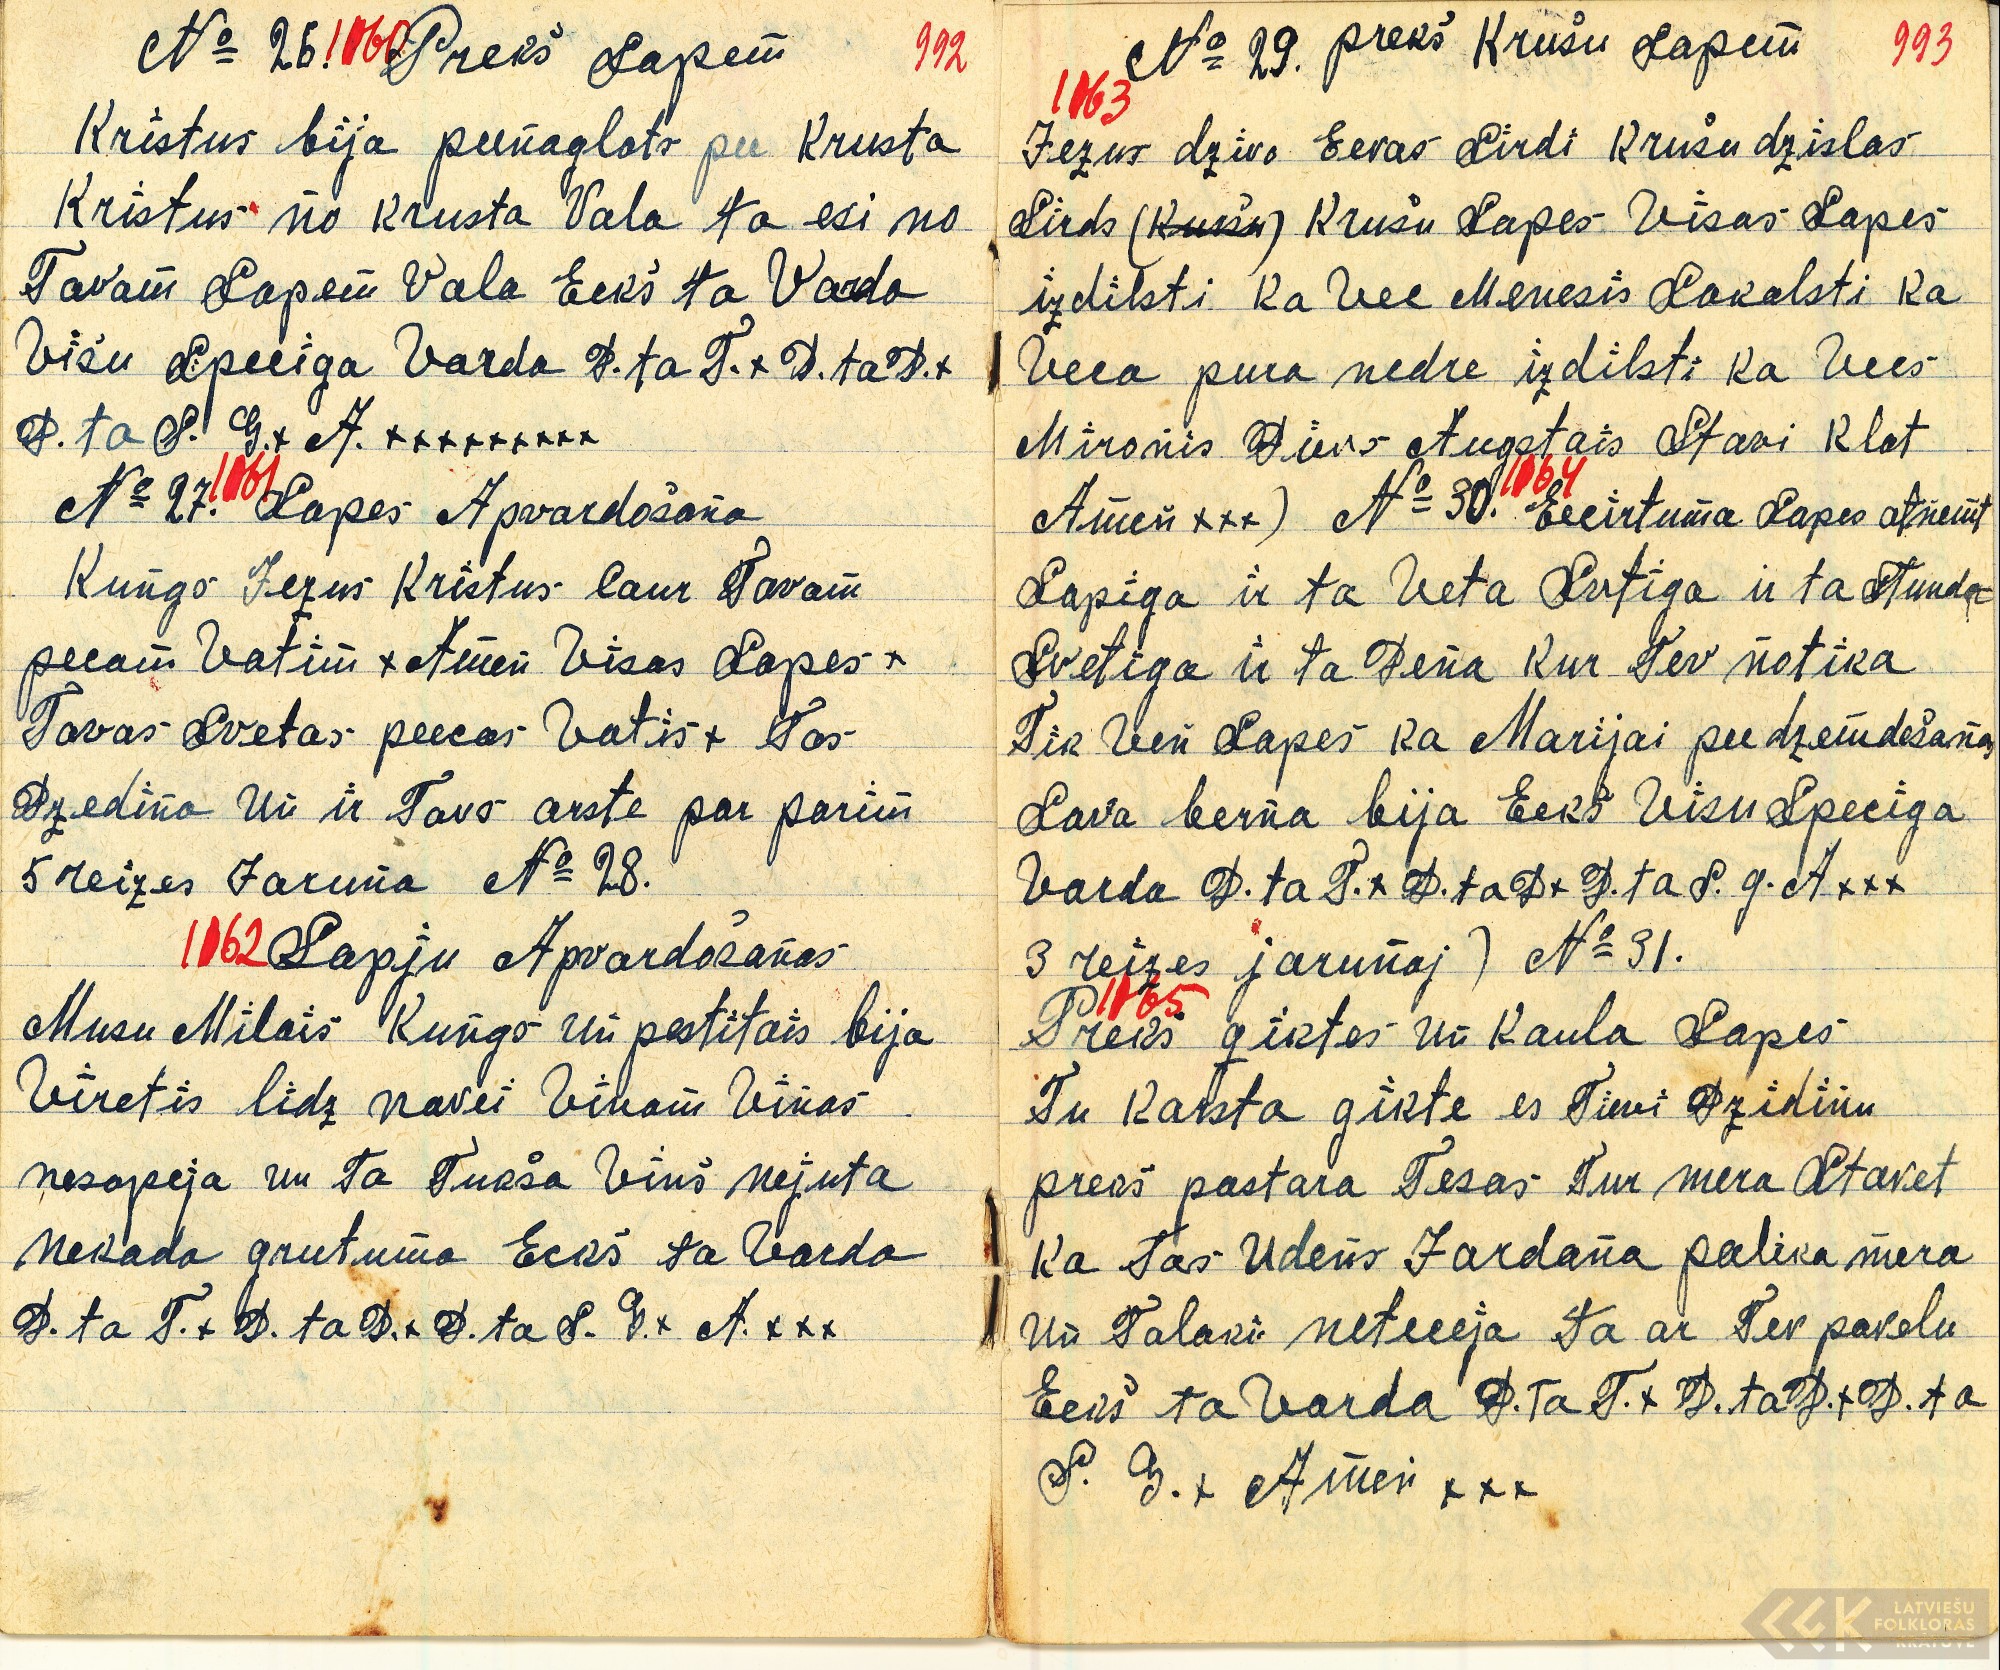 № 26. 1060 Preks̄ Sapem̄ 992
Kristus bija peen̄aglots pee Krusta
Kristus n̄o Krusta Vala ta esi no
Tavam̄ Sapem̄ Vala Eekš ta Varda
Višu Speeiga Varda D.ta T.x D.ta D.x
D.ta S. G.x A. xxxxxxxxx
№ 27. 1061 Sapes Apvardošan̄a
Kun̄gs Jezus Kristus caur Tavam̄
peecam̄ Vatim̄ x Am̄en̄ Visas Sapes x
Tavas Svetas peecas Vatis x Tas
Dzedin̄a Un̄ ir Tavs arste par parim̄
5 reizes Jarun̄a № 28.
1062 Sapju Apvardošan̄as
Musu Milais Kun̄gs un̄ pestitais bija
Viretis lidz navei Vinam̄ Vin̄as
nesapeja un Ta Tukša Vinš nejuta
Nekada grutum̄a Eekš ta Varda
D.ta T.x D.ta D.x D.ta S. G.x A. xxx
№ 29. prekš Krušu Sapem̄ 993
1063
Jezus dzivo Eevas Sirdi Krušu dzislas
Sirds (Krušu) Krušu Sapes Visas Sapes
izdilsti Ka Vee Menesis Sakalsti Ka
Veca pura nedre izdilsti Ka Vees
Mironis Dievs Augstais Stavi Klat
Am̄en̄ xxx) № 30. 1064 Eecirtum̄a Sapes atn̄emt
Sapiga ir ta Veta Svtiga ir ta Stunda
Svetiga ir ta Den̄a Kur Tev n̄otika
Tik Ven̄ Sapes ka Marijai pee dzem̄dešan̄as
Sava bern̄a bija Eekš Visu Speeiga
Varda D.ta T.x D.ta D x D.ta S. g. A xxx
3 reizes jarun̄aj) № 31.
1065
Prekš giktes un̄ Kaula Sapes
Tu Karsta gikte es Tievi Dzidin̄u
prekš pastara Tesas Tur mera Stavet
Ka tas Uden̄s Jardan̄a palika m̄era
Un̄ Talaki neteceja ta ar Tev pavelu
Eekš ta Varda D.Ta T.x D.ta D.x D.ta
S. G.x Am̄en xxx
LATVIEŠU
FOLKLORAS
KRĀTUVE